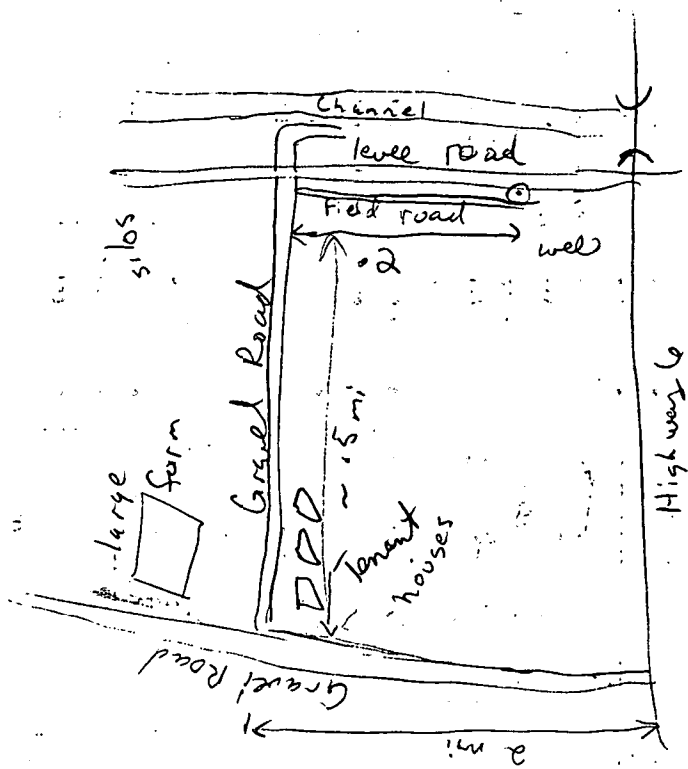 Channel
levee road
Field road
well
.2
silos
Gravel Road
~ .5 mi
large
farm
Tenant
houses
Highway 6
Gravel Road
2 mi